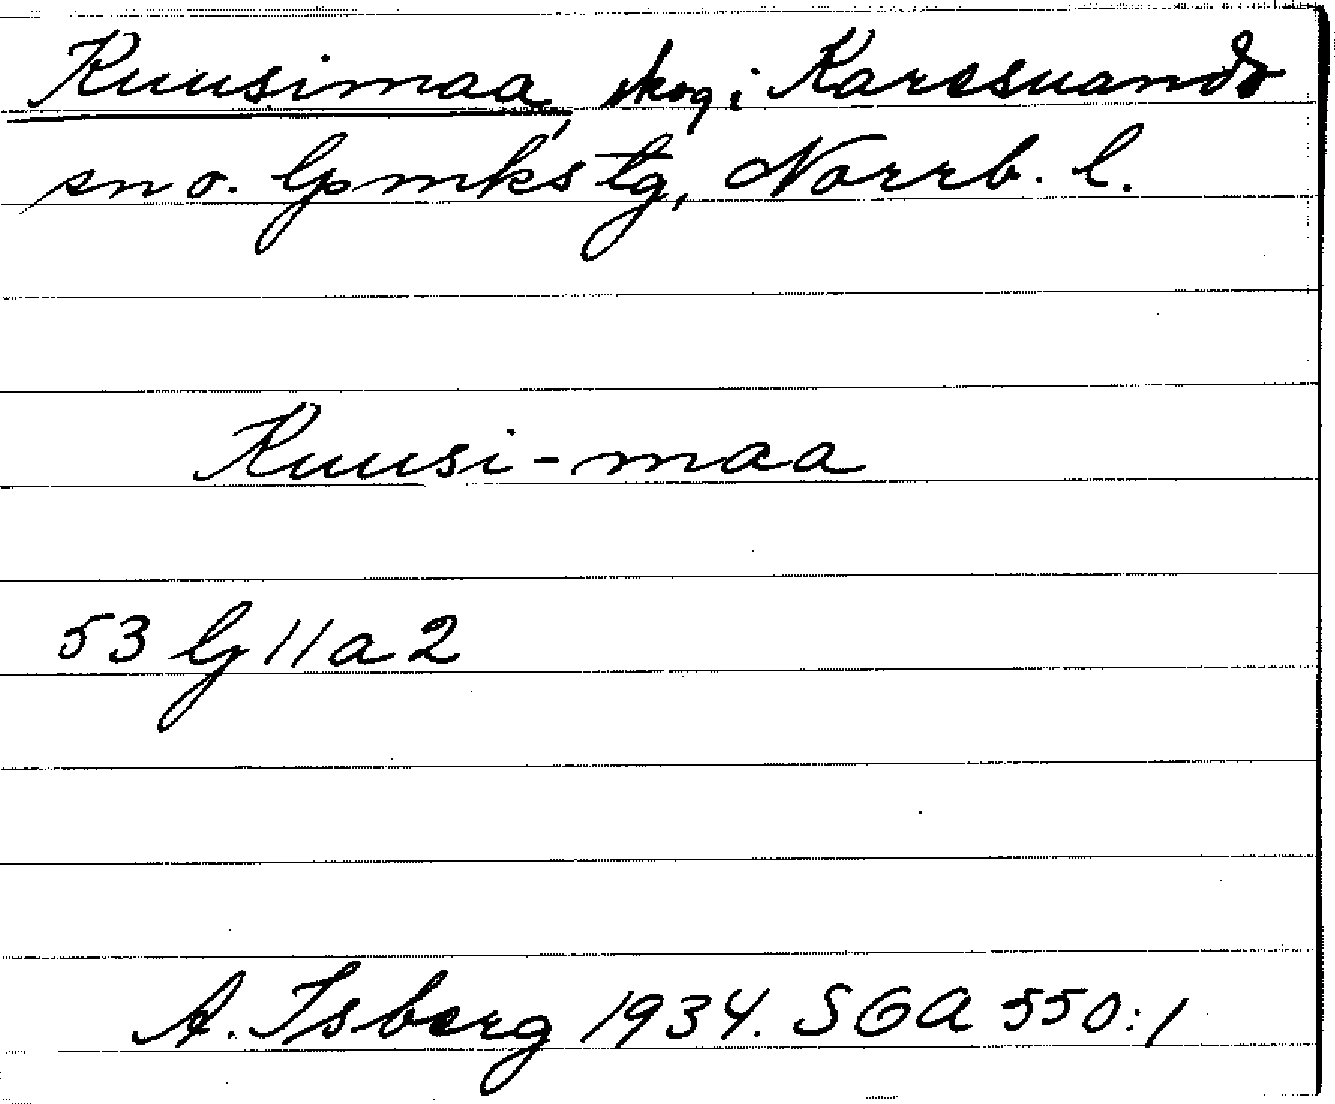 Kuusimaa, skog i Karesuando
sn o. lpmkstg, Norrb. l.
Kuusi-maa
53 lg 11 a 2
A. Isberg 1934. SGA 550:1